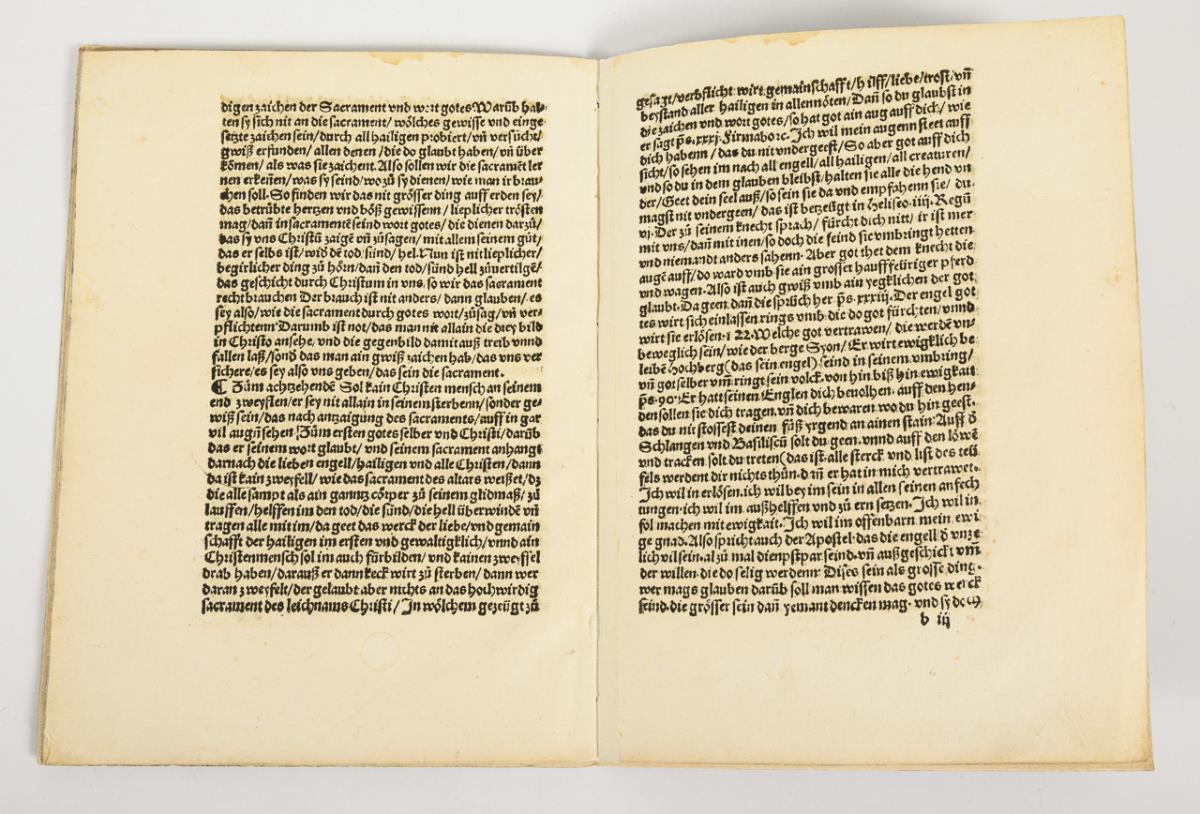 digen zaichen der Sacrament vnd wort gotes Warūb hal-
ten sy sich nit an die sacrament/ wölches gewisse vnd einge
setzte zaichen sein/ durch all hailigen probiert/ vn̄ versůcht/
gwiß erfunden/ allen denen/ die do glaubt haben/ vn̄ über
kōmen/ als was sie zaichent. Also sollen wir die sacramēt ler
nen erkeñen/ was sy seind/ wo zů sy dienen/ wie man ir brau-
chen soll. So finden wir das nit grösser ding auff erden sey/
das betrübte hertzen vnd böß gewissenn/ lieplicher trösten
mag/ dañ in sacramentē seind wort gotes/ die dienen darzů/
das sy vns Christū zaigē vn̄ zůsagen/ mit allem seinem gůt/
das er selbs ist/ wid̄ dē tod/ sünd/ hel. Nun ist nit lieplicher/
begirlicher ding zů hörn/ dañ den tod/ sünd hell zůuertilgē/
das geschicht durch Christum in vns/ so wir das sacrament
recht brauchen Der brauch ist nit anders/ dann glauben/ es
sey also/ wie die sacrament durch gotes wort/ zůsag/ vn̄ ver-
pflichtenn Darumb ist not/ das man nit allain die drey bild
in Christo ansehe/ vnd die gegenbild damit auß treib vnnd
fallen laß/ sond̄ das man ain gwiß zaichen hab/ das vns ver
sichere/ es sey also vns geben/ das sein die sacrament.
¶ Zům achtzehendē Sol kain Christen mensch an seinem
end zweyflen/ er sey nit allain in seinem sterbenn/ sonder ge-
wiß sein/ das nach antzaigung des sacraments/ auff in gar
vil augñ sehen Zům ersten gotes selber vnd Christi/ darūb
das er seinem wort glaubt/ vnd seinem sacrament anhangt
darnach die lieben engell/ hailigen vnd alle Christen/ dann
da ist kain zweyfell/ wie das sacrament des altars weißet/ dz
die alle sampt als ain ganntz cörper zů seinem glidmaß/ zů
lauffen/ helffen im den tod/ die sünd/ die hell überwindē vn̄
tragen alle mit im/ da geet das werck der liebe/ vnd gemain
schafft der hailigen im ersten vnd gewaltigklich/ vnnd ain
Christenmensch sol im auch fürbilden/ vnd kainen zweyffel
drab haben/ darauß er dann keck wirt zů sterben/ dann wer
daran zweyfelt/ der gelaubt aber nichts an das hochwirdig
sacrament des leichnams Christi/ In wölchem gezeügt zů
gesagt/ verpflicht wirt gemainschafft/ hilff/ liebe/ trost/ vn̄
beystand aller hailigen in allen nöten/ Dañ so du glaubst in
die zaichen vnd wort gotes/ so hat got ain aug auff dich/ wie
er sagt ps. xxxj. Firmabo rc. Ich wil mein augenn steet auff
dich habenn/ das du nit vndergeest/ So aber got auff dich
sicht/ so sehen im nach all engell/ all hailigen/ all creaturen/
vnd so du in dem glauben bleibst/ halten sie alle die hend vn
der/ Geet dein seel auß/ so sein sie da vnd empfahenn sie/ du
magst nit vndergeen/ das ist betzeügt in Heliseo. iiij. Regū
vj. Der zů seinem knecht sprach/ fürcht dich nitt/ ir ist mer
mit vns/ dañ mit inen/ so doch die feind sie vmbringt hetten
vnd niemandt anders sahenn. Aber got thet dem knecht die
augē auff/ do ward vmb sie ain grosser haufffeüriger pferd
vnd wagen. Also ist auch gwiß vmb ain yegklichen der got
glaubt. Da geen dañ die sprüch her ps. xxxiij. Der engel got
tes wirt sich einlassen rings vmb die do got fürchten/ vnnd
wirt sie erlösen. 122. Welche got vertrawen/ die werdē vn-
beweglich sein/ wie der berge Syon/ Er wirt ewigklich be
leibē Hochberg (das sein engel) seind in seinem vmbring/
vn̄ got selber vm̄ ringt sein volck. von hin biß hin ewigkait
ps. 90. Er hatt seinen Englen dich beuolhen. auff den hen-
den sollen sie dich tragen. vn̄ dich bewaren. wo du hin geest.
das du nit stossest deinen füß yrgend an ainen stain. Auff d̄
Schlangen vnd Basiliscū solt du geen. vnnd auff den löwē
vnd tracken solt du treten (das ist. alle sterck vnd list des teü
fels werdent dir nichts thůn. dañ er hat in mich vertrawet.
Ich wil in erlösen. ich wil bey im sein in allen seinen anfech
tungen. ich wil im außhelffen vnd zů ern setzen. Ich wil in
fol machen mit ewigkait. Ich wil im offenbarn mein ewi
ge gnad. Also spricht auch der Apostel. das die engell d̄ vnze
lich vil sein. al zů mal dienstpar seind. vn̄ außgeschickt vm̄
der willen. die do selig werdenn. Diseo sein als grosse ding.
wer mags glauben darūb soll man wissen das gotes werck
seind. die grösser sein dañ yemant dencken mag. vnd sy doch
b iij